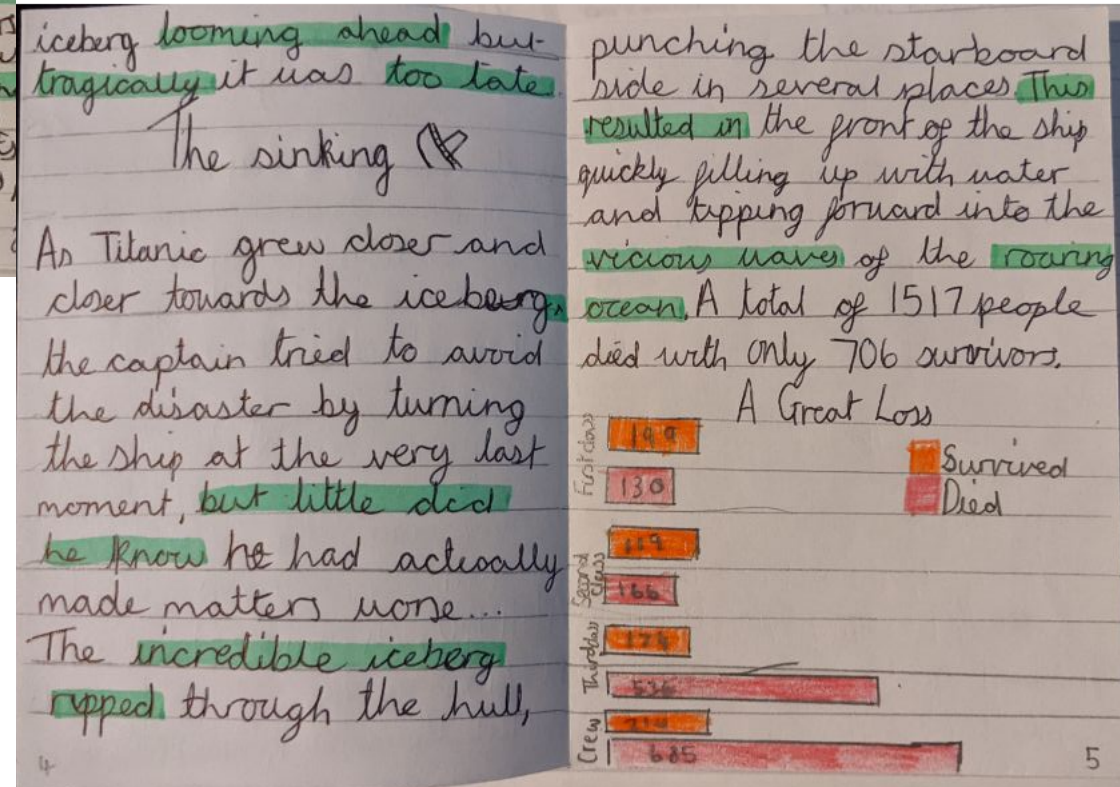 iceberg looming ahead but
tragically it was too late.
The sinking
As Titanic grew closer and
closer towards the iceberg,
the captain tried to avoid
the disaster by turning
the ship at the very last
moment, but little did
he know he had actually
made matters worse...
The incredible iceberg
ripped through the hull,
4
punching the starboard
side in several places. This
resulted in the front of the ship
quickly filling up with water
and tipping forward into the
vicious waves of the roaring
ocean. A total of 1517 people
died with only 706 survivors.
A Great Loss
First class
199
130
Survived
Died
Second class
119
166
Third class
174
536
Crew
685
5